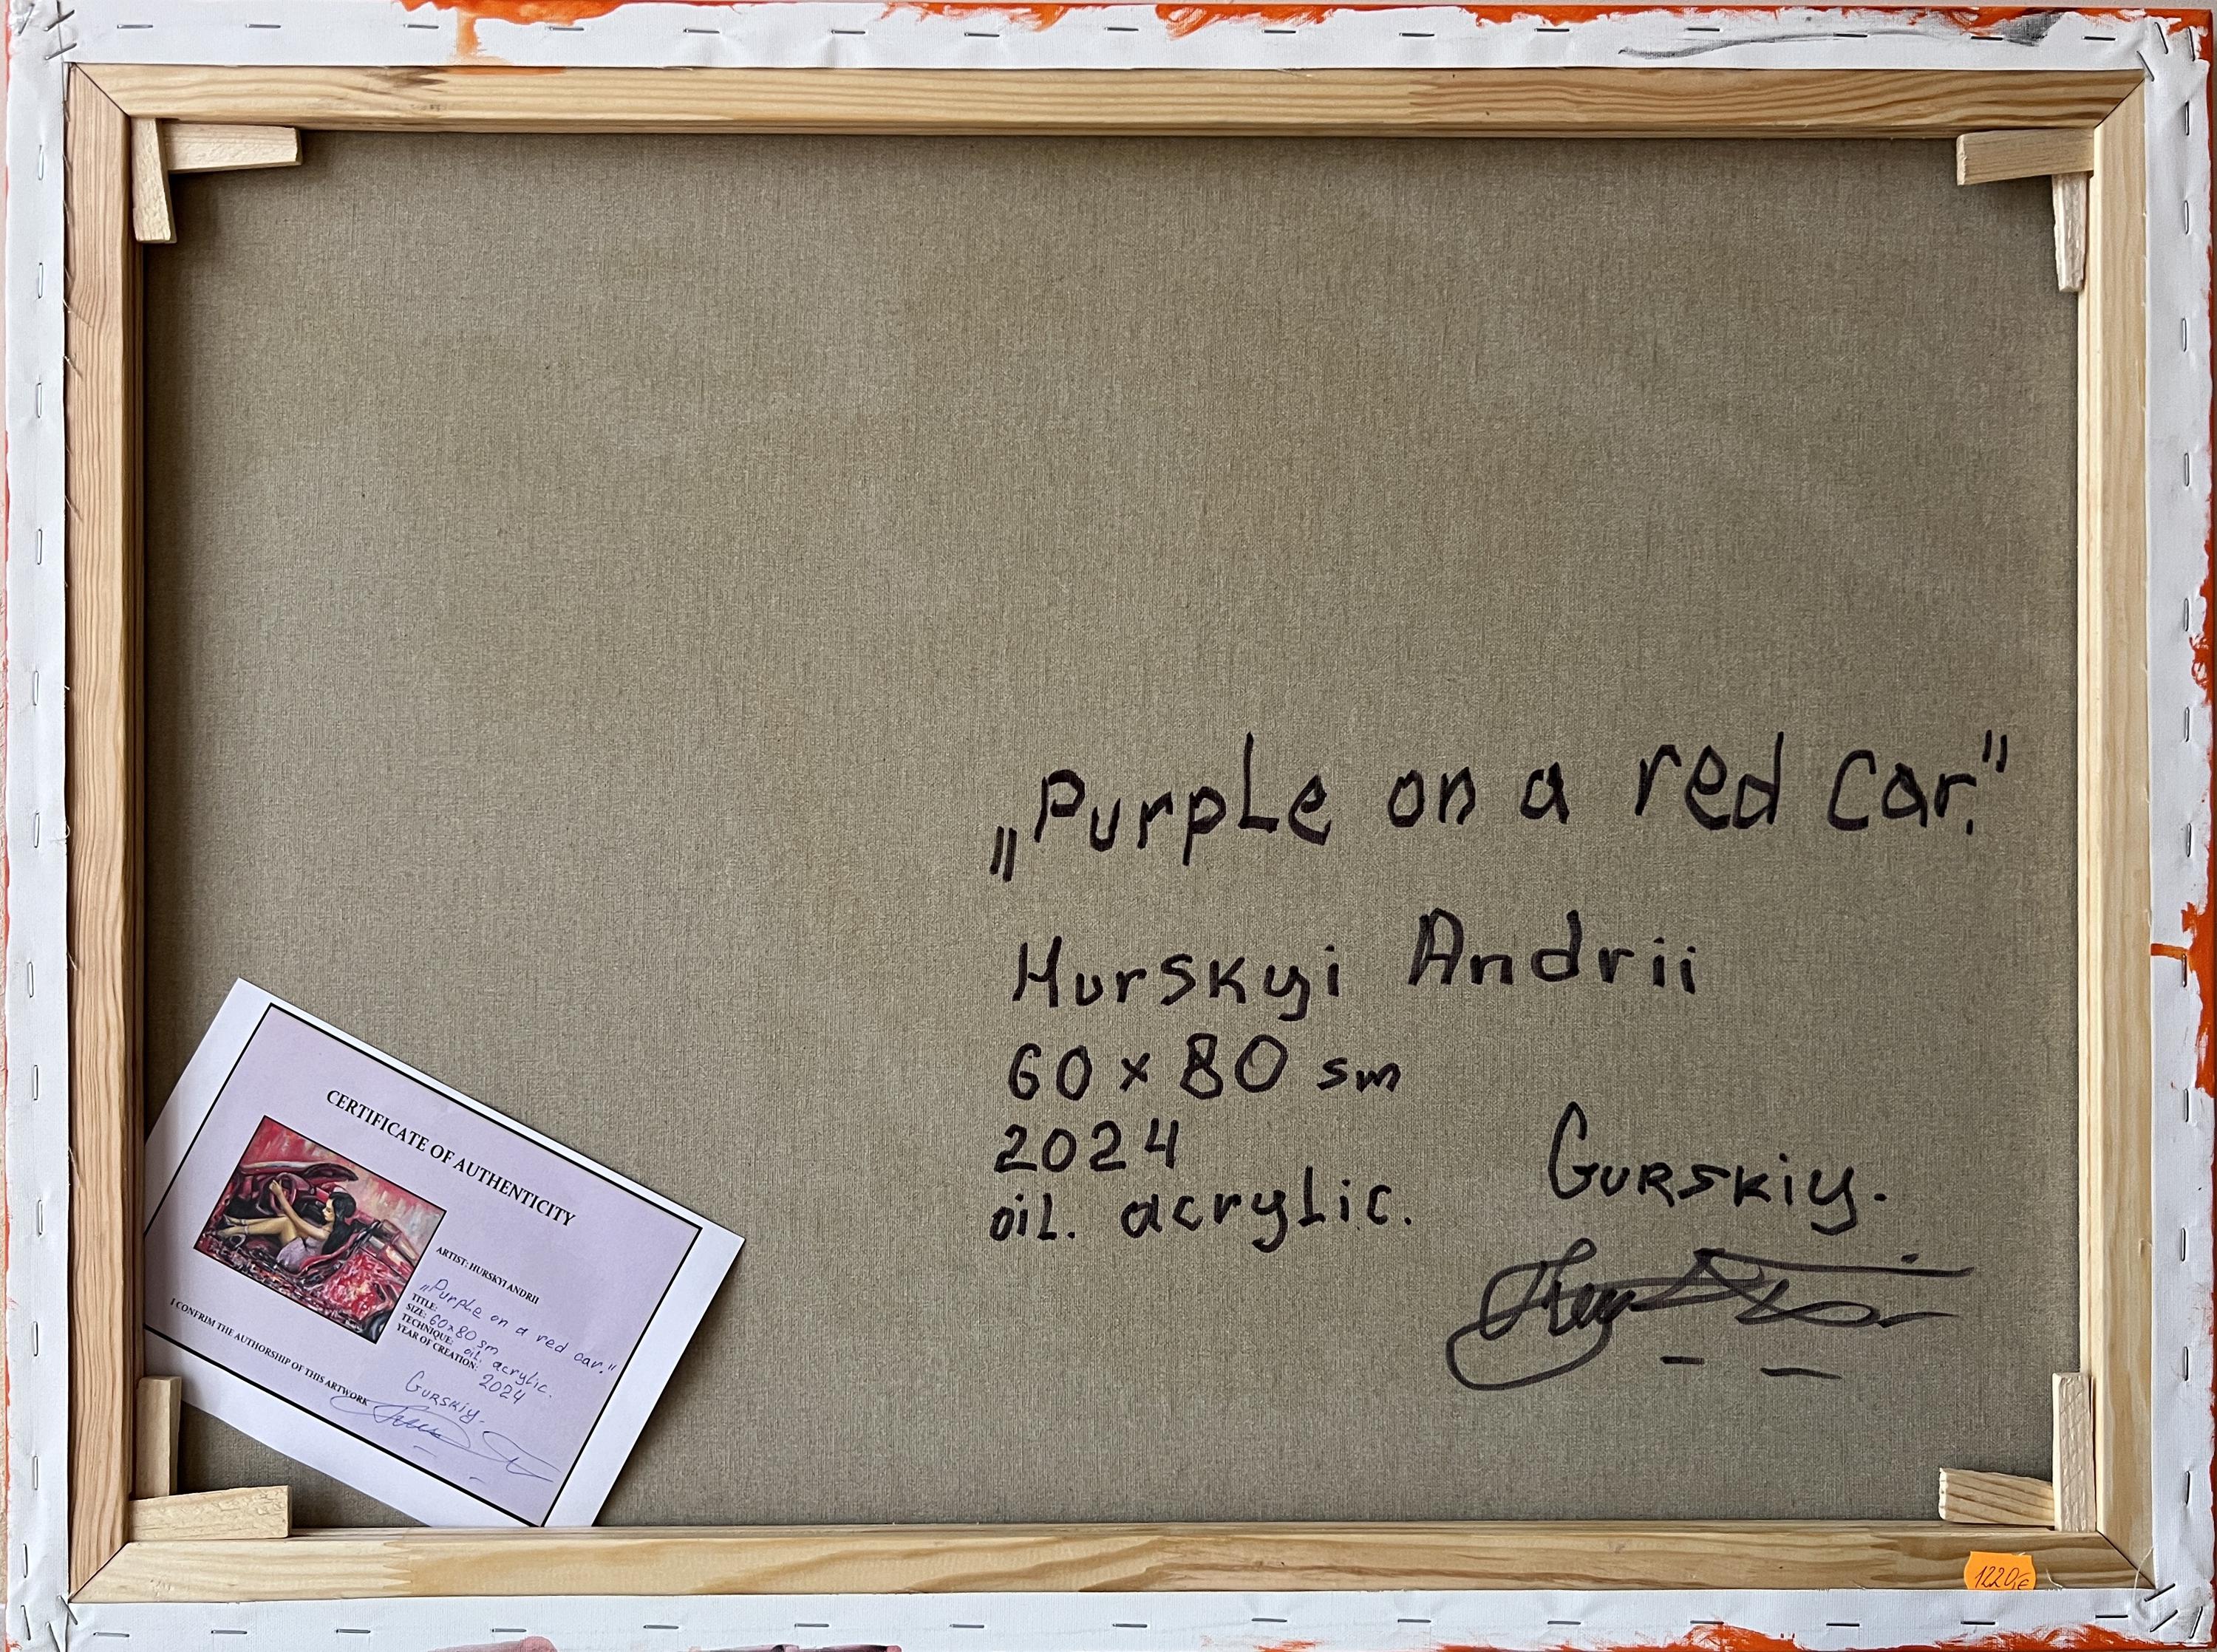 „Purple on a red car."
Hurskyi Andrii
60 x 80 sm
2024
oil. acrylic.
Gurskiy.
CERTIFICATE OF AUTHENTICITY
ARTIST: HURSKYI ANDRII
TITLE: „Purple on a red car."
SIZE: 60x80 sm
TECHNIQUE: oil. acrylic.
YEAR OF CREATION: 2024
I CONFRIM THE AUTHORSHIP OF THIS ARTWORK
Gurskiy.
1220,€